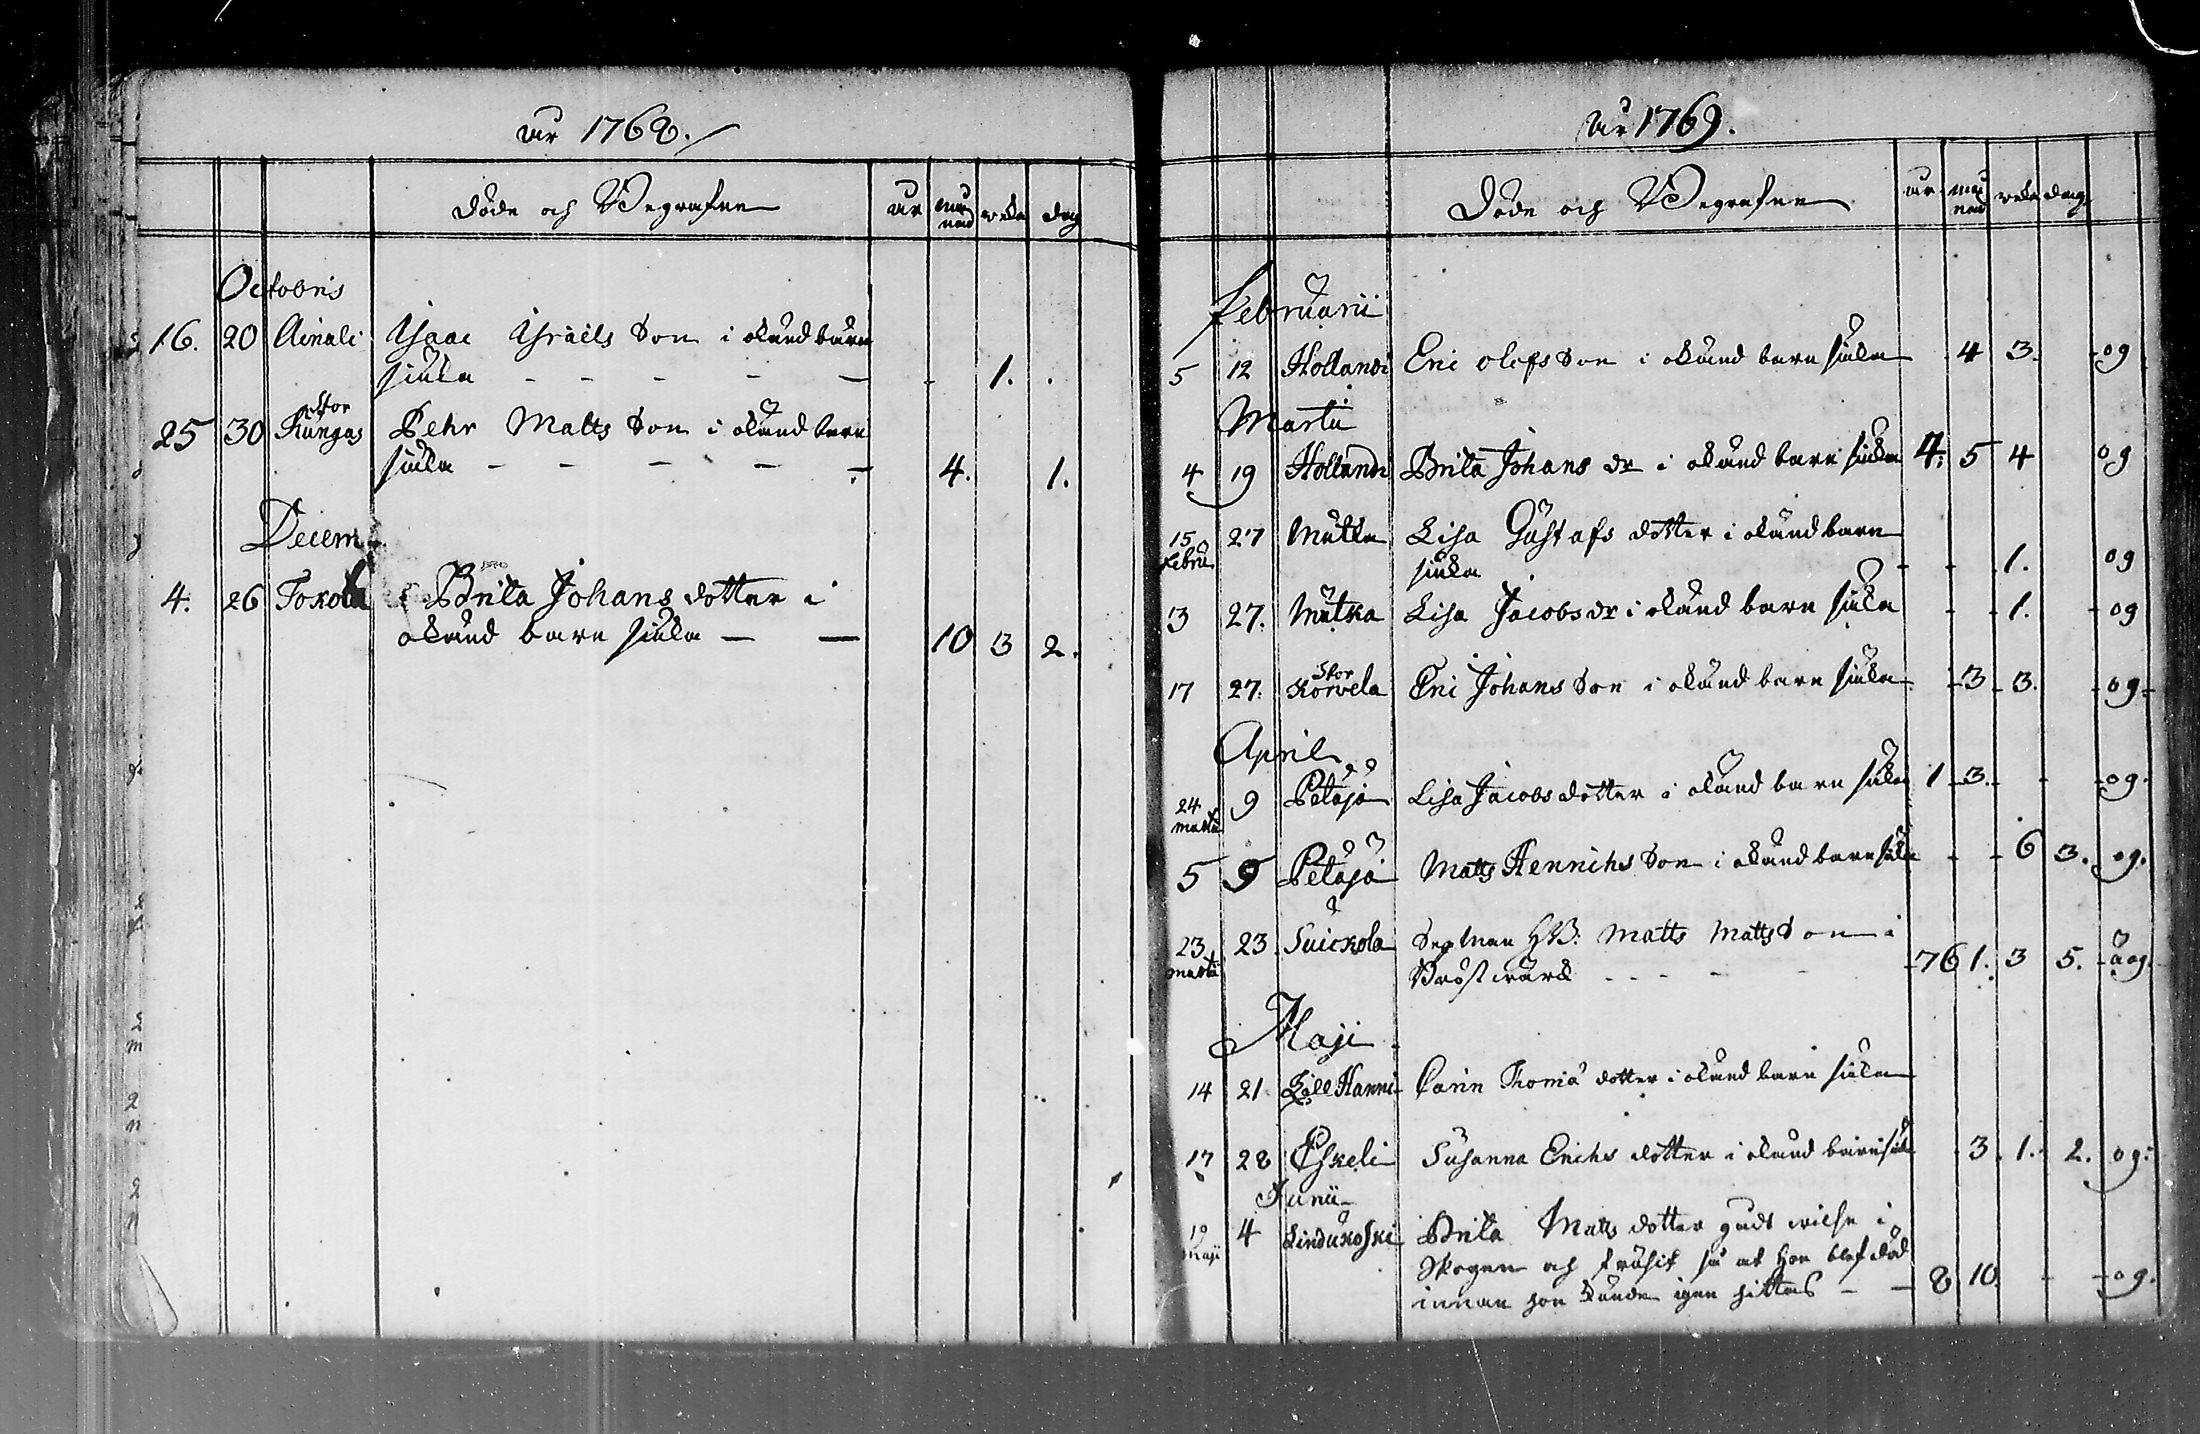 åhr 1768.
Döde och Begrafne åhr må nad veka dag
Octobris
16. 20 Ainali Isaac Israels Son i okänd barn
siuka - - - - - - 1.
25 30 Stor Kangas Pehr Matts Son i okänd barn
siuka - - - - - 4. 1.
Decem
4. 26 Toxola Brita Johans dotter i
okänd barn siuka - - 10 3 2.
åhr 1769.
Döde och Begrafne åhr må nad veka dag
Februarii
5 12 Hollandi Eric Olofs Son i okänd barn siuka 4 3. og
Martii
4 19 Hollandi Brita Johans dr i okänd barn siuka 4: 5 4 og
15 Febru 27 Mutka Lisa Gustafs dotter i okänd barn
siuka - - 1. og
3 27. Mutka Lisa Jacobs dr i okänd barn siuka - - 1. og
17 27. Stor Korvela Eric Johans Son i okänd barn siuka - 3 3. og
April
24 Martii 9 Petäjä Lisa Jacobs dotter i okänd barn siuka 1 3. - - og.
5 9 Petäjä Matts Henrichs Son i okänd barn siuka - - 6 3. og.
23 Martii 23 Suickola Matts Matts Son i
Bröstwärk - - - - 76 1. 3 5. og.
Maji
14 21 Lill Hanni Carin Thomä dotter i okänd barn siuka
17 28 Eskeli Susanna Erichs dotter i okänd barn siuk 3. 1. 2. og:
Junii
19 Maji 4 Lindukoski Brita Matts dotter gick wilse i
Skogen och frusit så at hon blef död
innan hon kunde igen hittas - - 8 10. - - og.